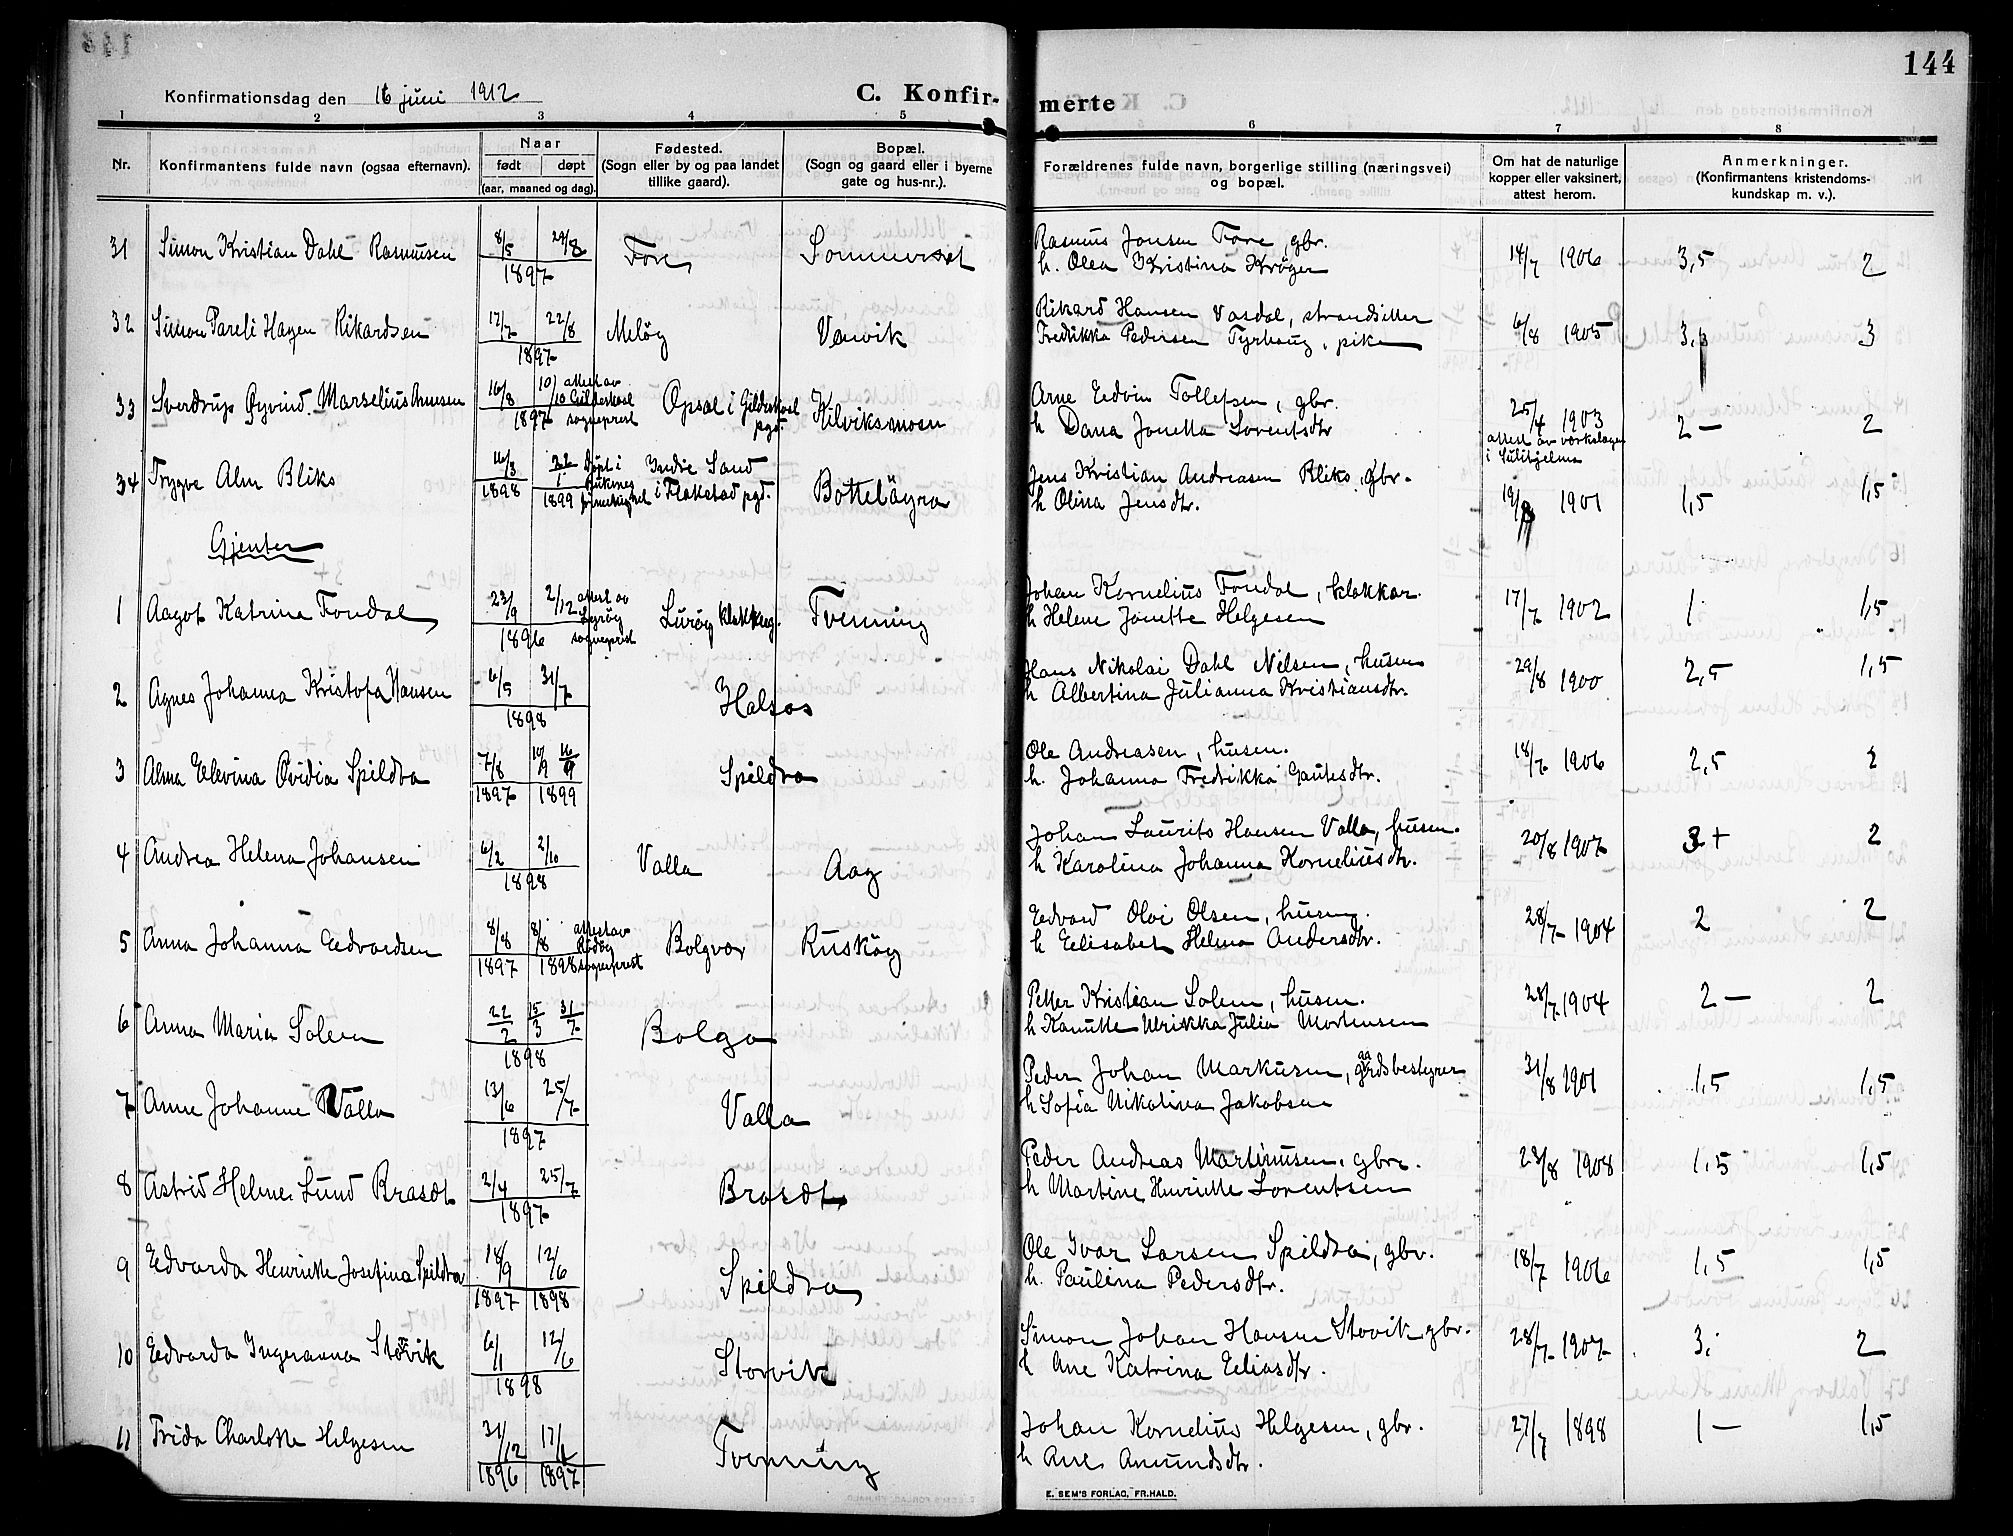 144
Konfirmationsdag den 16 juni 1912
C. Konfir-
merte
1 2 3 4 5 6 7 8
Nr.
Konfirmantens fulde navn (ogsaa efternavn).
Naar
født døpt
(aar, maaned og dag).
Fødested.
(Sogn eller by og paa landet
tillike gaard).
Bopæl.
(Sogn og gaard eller i byerne
gate og hus-nr.).
Forældrenes fulde navn, borgerlige stilling (næringsvei)
og bopæl.
Om hat de naturlige
kopper eller vaksinert,
attest herom.
Anmerkninger.
(Konfirmantens kristendoms-
kundskap m. v.).
31 Simon Kristian Dahl Rasmusen 8/5 29/8 1897 Fore Sommerset
Rasmus Jonsen Fore, gbr.
h. Olea Kristina Krøger 14/7 1906 3,5 2
32 Simon Pareli Hagen Rikardsen 17/7 22/8 1897 Meløy Vervik
Rikard Hansen Vasdal, strandsitter
Fredrikka Pedersen Tyrhaug, pike 6/8 1905 3, 3
33 Sverdrup Øyvind Marselius Arnesen 16/8 10/10 1897 attest av Gildeskaal sogneprest Opsal i Gildeskaal pgd. Kilviksmosen
Arne Edvin Tollefsen, gbr.
h Dana Jonetta Lorentsdtr 25/4 1903 2 — 2
attest av verkslæge
i Sulitjelma
34 Trygve Alm Bliks 16/3 1898 22/1 1899 Døpt i Indre Sand i Flakstad pgd. Bottelöyra
Jens Kristian Andreasen Bliks, gbr.
h Olina Jensdtr. 19/8 1901 1,5 1,5
Gjenter
1 Aagot Katrine Fondal 23/9 2/12 1896 attest av Lurøy sogneprest Lurøy klokkerg. Tvenning
Johan Kornelius Fondal, klokker.
h Helene Jonette Helgesen 17/7 1902 1 1,5
2 Agnes Johanna Kristofa Hansen 6/5 31/7 1898 Halsos
Hans Nikolai Dahl Nilsen, husm
h Albertina Julianna Kristiansdtr. 29/8 1900 2,5 1,5
3 Alma Elevina Ovidia Spildra 7/8 1897 10/9 16/9 1899 Spildra
Ole Andreasen, husm.
h. Johanna Fredrikka Gautesdtr. 18/7 1906 2,5 2
4 Andrea Helena Johansen 6/2 2/10 1898 Valla Aag
Johan Laurits Hansen Valla, husm.
h Karolina Johanna Korneliusdtr. 20/8 1907 3+ 2
5 Anna Johanna Edvardsen 8/8 1897 8/8 1898 attest av Rødøy sogneprest Bolgvær Ruskøy
Edvard Olai Olsen, husm.
h Elisabet Helena Andersdtr. 28/7 1904 2 2
6 Anna Maria Solem 22/2 15/3 31/7 1898 Bolga
Petter Kristian Solem, husm.
h Kanutte Ulrikka Julia Mortensen 28/7 1904 2 — 2
7 Anne Johanne Valla 13/6 25/7 1897 Valla
Peder Johan Markusen, gaardsbestyrer
h Sofia Nikolina Jakobsen 31/8 1901 1,5 1,5
8 Astrid Helene Lund Brasdt 2/4 25/7 1897 Brasdt
Peder Andreas Martinusen, gbr.
h Martine Henriette Lorentsen 23/8 1908 1,5 1,5
9 Edvarda Henriette Josefina Spildra 18/9 1897 12/6 1898 Spildra
Ole Ivar Larsen Spildra, gbr.
h. Paulina Pedersdtr. 18/7 1906 1,5 1,5
10 Edvarda Ingeranna Storvik 6/1 12/6 1898 Storvik
Simon Johan Hansen Storvik gbr.
h Ane Katrina Eliasdtr. 28/7 1907 3 2
11 Frida Charlotte Helgesen 31/12 1896 17/1 1897 Tvenning
Johan Kornelius Helgesen, gbr.
h Ane Amundsdtr. 27/7 1898 1 — 1,5
E. SEM'S FORLAG, FR.HALD.